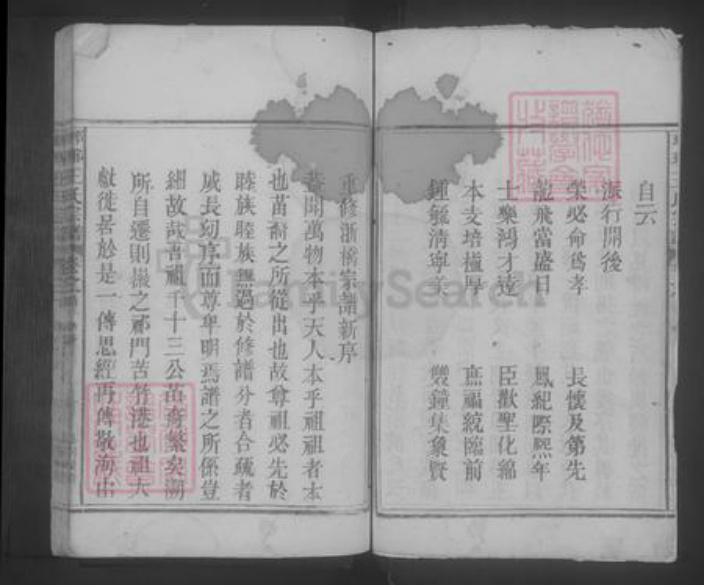 自云
派行開後
榮必命爲孝 長懷及第先
龍飛當盛日 鳳紀際熙年
士樂鴻才達 臣歡聖化綿
本支培植厚 燕福統臨前
鍾毓清寧美 雙鐘集象賢
重修浙橋宗譜新序
蓋聞萬物本乎天人本乎祖祖者本
也苗裔之所從出也故尊祖必先於
睦族睦族無過於修譜分者合疏者
戚長幼序而尊卑明焉譜之所係豈
細故哉吾祖千十三公苗裔繁矣溯
所自遷則撮之祁門苦竹港也祖大
獻徙居於是一傳思經再傳敬海由
FamilySearch